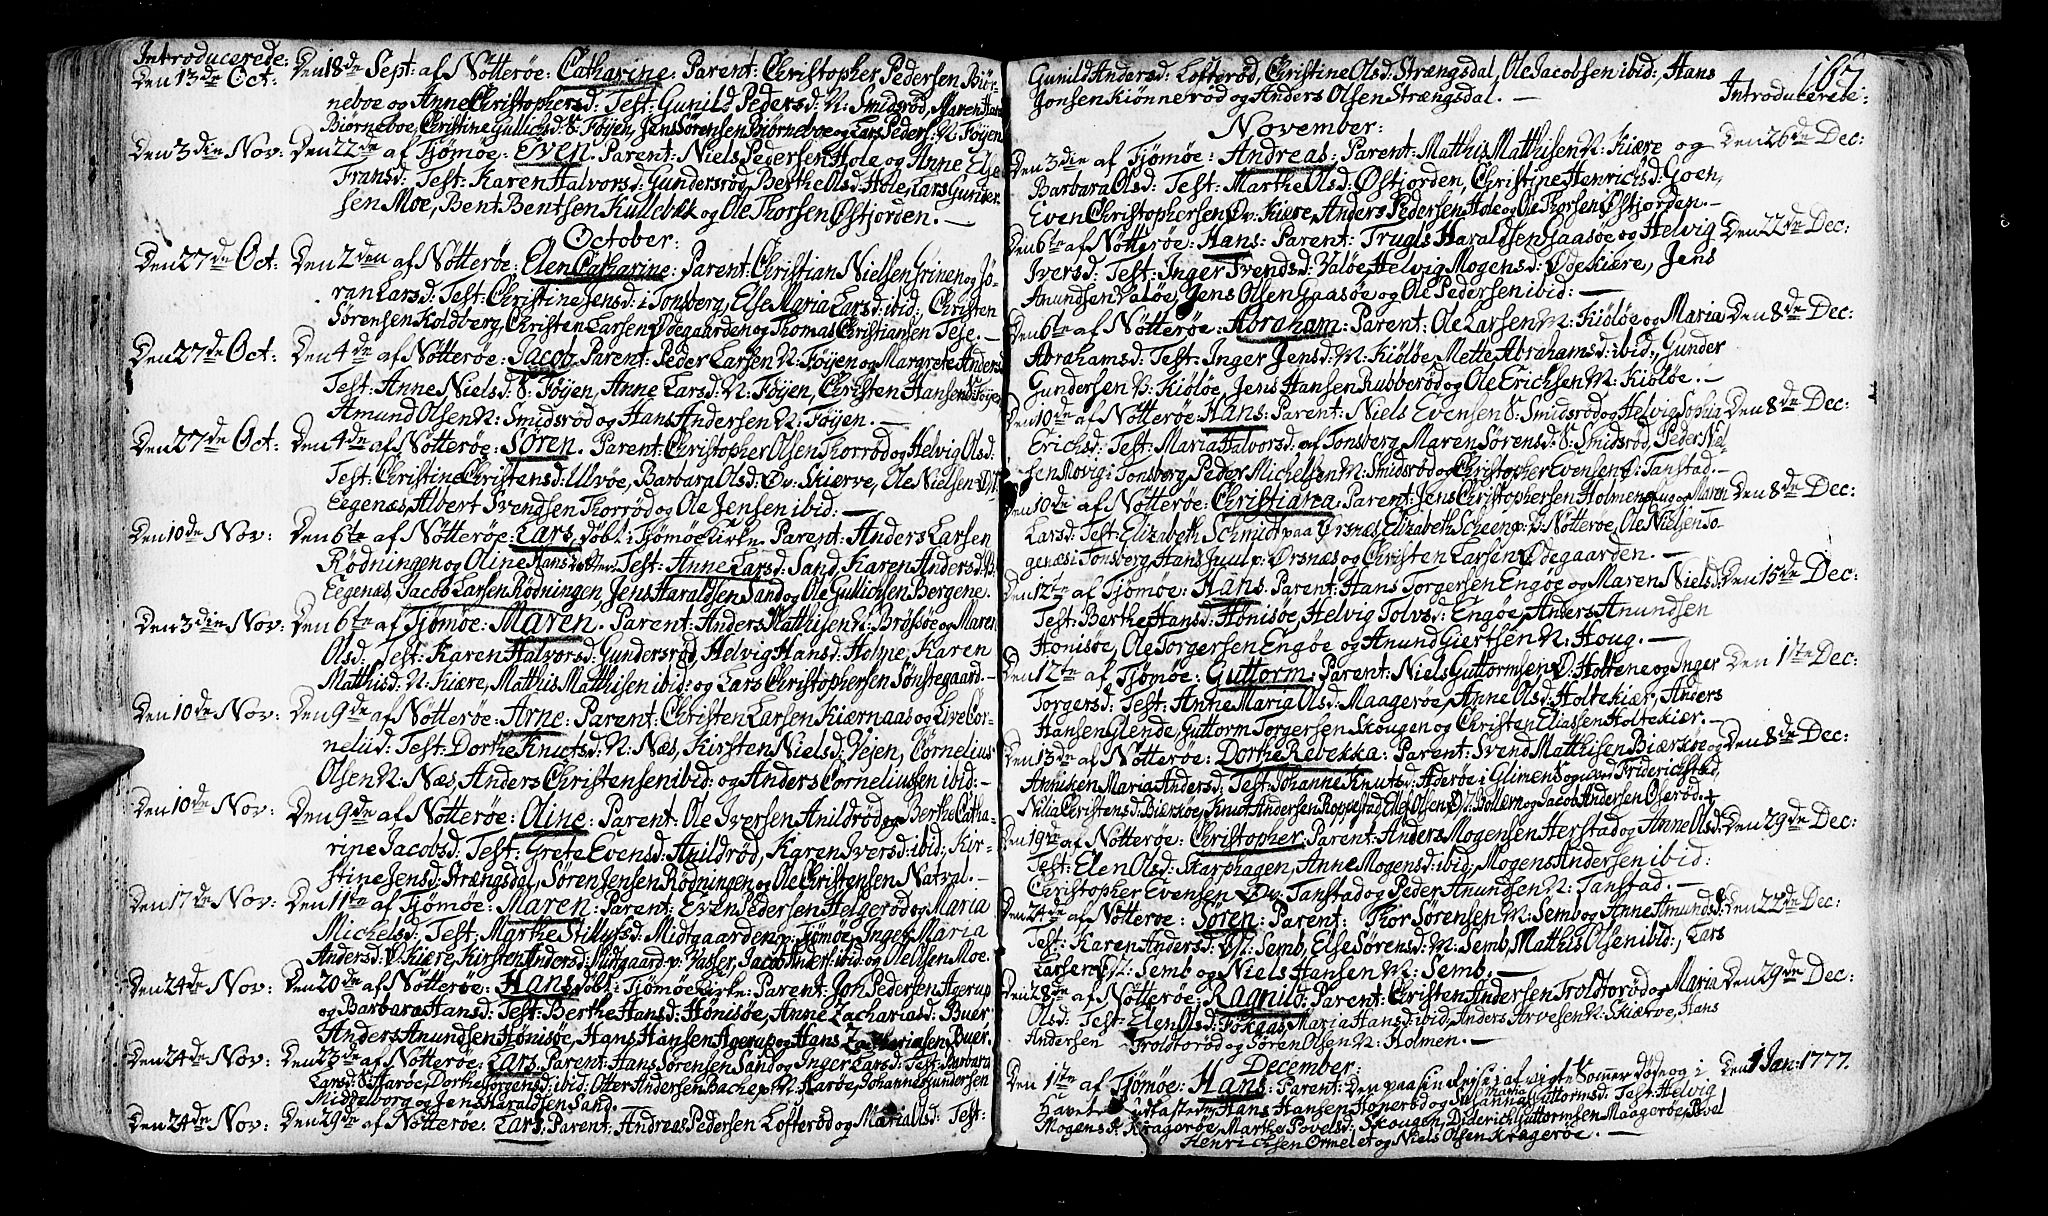 Introducerede:
Den 13de Oct: Den 18de Sept: af Nötterøe: Catharine: Parent: Christopher Pedersen Biør-
neboe og Anne Christophersd: Test: Gunild Pedersd: N: Smidsrød, Maren
Biørneboe, Christine Gullichsd: S: Föyen, Jens Sørensen Biørneboe og Lars Peders: N: Föyen
Den 3die Nov: Den 22de af Tjömöe: Even. Parent: Niels Pedersen Hole og Anne Else
Fransd: Test: Karen Halvorsd: Gundersrød, Berthe Olsd: Hole, Lars Gunder-
sen Moe, Bent Bentsen Kullebek og Ole Thorsen Østjorden. —
October:
Den 27de Oct: Den 2den af Nötterøe: Elen Catharine: Parent: Christian Nielsen Grinen og Jö-
ran Larsd: Test: Christine Jensd: i Tonsberg, Else Maria Larsd: ibid:, Christen
Sørensen Koldberg, Christen Larsen Ødegaarden og Thomas Christiansen Teie. —
Den 27de Oct: Den 4de af Nötterøe: Jacob. Parent: Peder Larsen N: Föyen og Margrete Andersd:
Test: Anne Nielsd: S: Föyen, Anne Larsd: N: Föyen, Christen Hansen S: Föyen
Amund Olsen N: Smidsrød og Hans Andersen N: Föyen. —
Den 27de Oct: Den 4de af Nötterøe: Sören. Parent: Christopher Olsen Thorrød og Helvig Olsd:
Test: Christine Christensd: Ulvøe, Barbara Olsd: Øv: Skierve, Ole Nielsen
Eegenæs, Albert Svendsen Thorrød og Ole Jensen ibid: —
Den 10de Nov: Den 6te af Nötterøe: Lars, døbt i Tjömöe Kirke. Parent: Anders Larsen
Rödningen og Oline Hansdatter. Test: Anne Larsd: Sand, Karen Andersd:
Eegenæs, Jacob Larsen Rödningen, Jens Haraldsen Sand og Ole Gullichsen Bergene.
Den 3die Nov: Den 6te af Tjömöe: Maren. Parent: Anders Mathisen N: Brøtsöe og Maren
Olsd: Test: Karen Halvorsd: Gundersrød, Helvig Hansd: Holme, Karen
Mathisd: N: Kiære, Matthis Matthisen ibid: og Lars Christophersen Sönstegaard. —
Den 10de Nov: Den 9de af Nötterøe: Arne: Parent: Christen Larsen Kiærnaas og Live Cor-
neliid: Test: Dorthe Knutsd: N: Næs, Kirsten Nielsd: Vejen, Cornelius
Olsen N: Næs, Anders Christensen ibid: og Anders Corneliussen ibid: —
Den 10de Nov: Den 9de af Nötterøe: Oline: Parent: Ole Iversen Anildrød og Berthe Catha-
rine Jacobsd: Test: Grete Evensd: Anildrød, Karen Iversd: ibid:, Kir-
stine Jensd: Strængsdal, Sören Jensen Rödningen og Ole Christensen Natval. —
Den 17de Nov: Den 11te af Tjömöe: Maren: Parent: Even Pedersen Helgerød og Maria
Michelsd: Test: Marthe Stillufsd: Midtgaarden p: Tjömöe, Inger Maria
Andersd: Ø: Kiære, Kirsten Andersd: Midtgaard p: Vasser, Jacob Anders: ibid og Ole Olsen Moe.
Den 24de Nov: Den 20de af Nötterøe: Hans, döbt i Tjömöe Kirke: Parent: Jon Pedersen Agerup
og Barbara Hansd: Test: Berthe Hansd: Hönisöe, Anne Zachariasd: Buer
Anders Anundsen Hönisöe, Hans Hansen Agerup og Hans Zachariasen Buer.
Den 24de Nov: Den 23de af Nötterøe: Lars. Parent: Hans Sörensen Sand og Inger Larsd: Test: Barbara
Larsd: S: Harøe, Dorthe Torgensd: ibid: Otter Andersen Backe p: N: Harøe, Johannes Gundersen
Middelborg og Jens Haraldsen Sand. —
Den 24de Nov: Den 29de af Nötterøe: Lars: Parent: Andreas Pedersen Lofterød og Maria Olsd: Test:
Gunild Andersd: Lofterød, Christine Olsd: Strængsdal, Ole Jacobsen ibid:, Hans
Jonsen Kiønnerød og Anders Olsen Strængsdal. —
167
Introducerede:
November:
Den 3die af Tjömöe: Andreas: Parent: Matthis Matthisen N: Kiære og Den 26de Dec:
Barbara Olsd: Test: Marthe Olsd: Østjorden, Christine Henrichsd: Goen,
Even Christophersen Øv: Kiære, Anders Pedersen Hole og Ole Thorsen Østjorden. —
Den 6te af Nötterøe: Hans: Parent: Trugls Haraldsen Gaasøe og Helvig Den 22de Dec:
Iversd: Test: Inger Svendsd: Valøe, Helvig Mogensd: Ødekiære, Jens
Anundsen Valøe, Jens Olsen Gaasøe og Ole Pedersen ibid: —
Den 6te af Nötterøe: Abraham: Parent: Ole Larsen N: Kiöløe og Maria Den 8de Dec:
Abrahamsd: Test: Inger Jensd: N: Kiöløe, Mette Abrahamsd: ibid:, Gunder
Gundersen N: Kiöløe, Jens Hansen Rubberød og Ole Erichsen N: Kiöløe. —
Den 10de af Nötterøe: Hans: Parent: Niels Evensen S: Smidsrød og Helvig Sophia Den 8de Dec:
Erichsd: Test: Maria Halvorsd: af Tonsberg, Maren Sörensd: S: Smidsrød, Peder Niel-
sen Movig i Tonsberg, Peder Michelsen N: Smidsrød og Christopher Evensen Ø: Tanstad. —
Den 10de af Nötterøe: Christiana. Parent: Jens Christophersen Holmen og Maren Den 8de Dec:
Larsd: Test: Elizabeth Schmidt paa Ørsnæs, Elizabeth Scheen p: Nötterøe, Ole Nielsen To-
genæs i Tonsberg, Hans Juul p: Ørsnæs og Christen Larsen Ødegaarden. —
Den 12te af Tjömöe: Hans. Parent: Hans Torgersen Engøe og Maren Nielsd: Den 15de Dec:
Test: Berthe Hansd: Hönisöe, Helvig Tolvsd: Engøe, Anders Anundsen
Hönisöe, Ole Torgersen Engøe og Anund Giertsen N: Houg. —
Den 12te af Tjömöe: Guttorm: Parent: Niels Guttormsen Ø: Holtene og Inger Den 1ste Dec:
Torgersd: Test: Anne Maria Olsd: Maagerøe, Anne Olsd: Holtekiær, Anders
Hansen Glende, Guttorm Torgersen Skougen og Christen Eliassen Holtekier. —
Den 13de af Nötterøe: Dorthe Rebekka: Parent: Svend Matthisen Bierkøe og Den 8de Dec:
Anniken Maria Andersd: Test: Johanne Knutsd: Aderøe i Glimens Sogn ved Friderichstad,
Nilia Christensd: Bierkøe, Knut Andersen Roppestad, Ole Olsen Øv: Bollern og Jacob Andersen Oserød.
Den 19de af Nötterøe: Christopher: Parent: Anders Mogensen Herstad og Anne Olsd: Den 29de Dec:
Test: Elen Olsd: Skarphagen, Anne Mogensd: ibid:, Mogens Andersen ibid:
Christopher Evensen Øv: Tanstad og Peder Anundsen N: Tanstad. —
Den 24de af Nötterøe: Sören: Parent: Thor Sörensen N: Semb og Anne Amundsd: Den 22de Dec:
Test: Karen Andersd: Øv: Semb, Else Sörensd: N: Semb, Matthis Olsen ibid:, Lars
Larsen Øv: Semb og Niels Hansen N: Semb. —
Den 28de af Nötterøe: Ragnild: Parent: Christen Andersen Troldtorød og Maria Den 29de Dec:
Olsd: Test: Elen Olsd: Fokaas, Maria Hansd: ibid, Anders Torvesen N: Skierve, Hans
Andersen Troldtorød og Sören Olsen N: Holmen. —
December:
Den 1te af Tjömöe: Hans: Parent: Den paa sin Reise i afvigte Sommer döde og i Den 1 Jan: 1777.
Havet udkastede Hans Hansen Honerød og Susanna Maria Guttormsd: Test: Helvig
Mogensd: Kragerøe, Marthe Povelsd: Skougen, Diderich Guttormsen Maagerøe, Povel
Henrichsen Ormelet og Niels Olsen Kragerøe. —